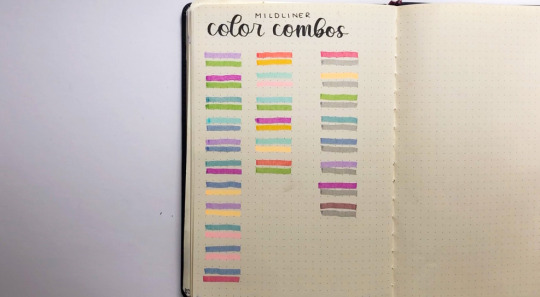 MILDLINER
color combos